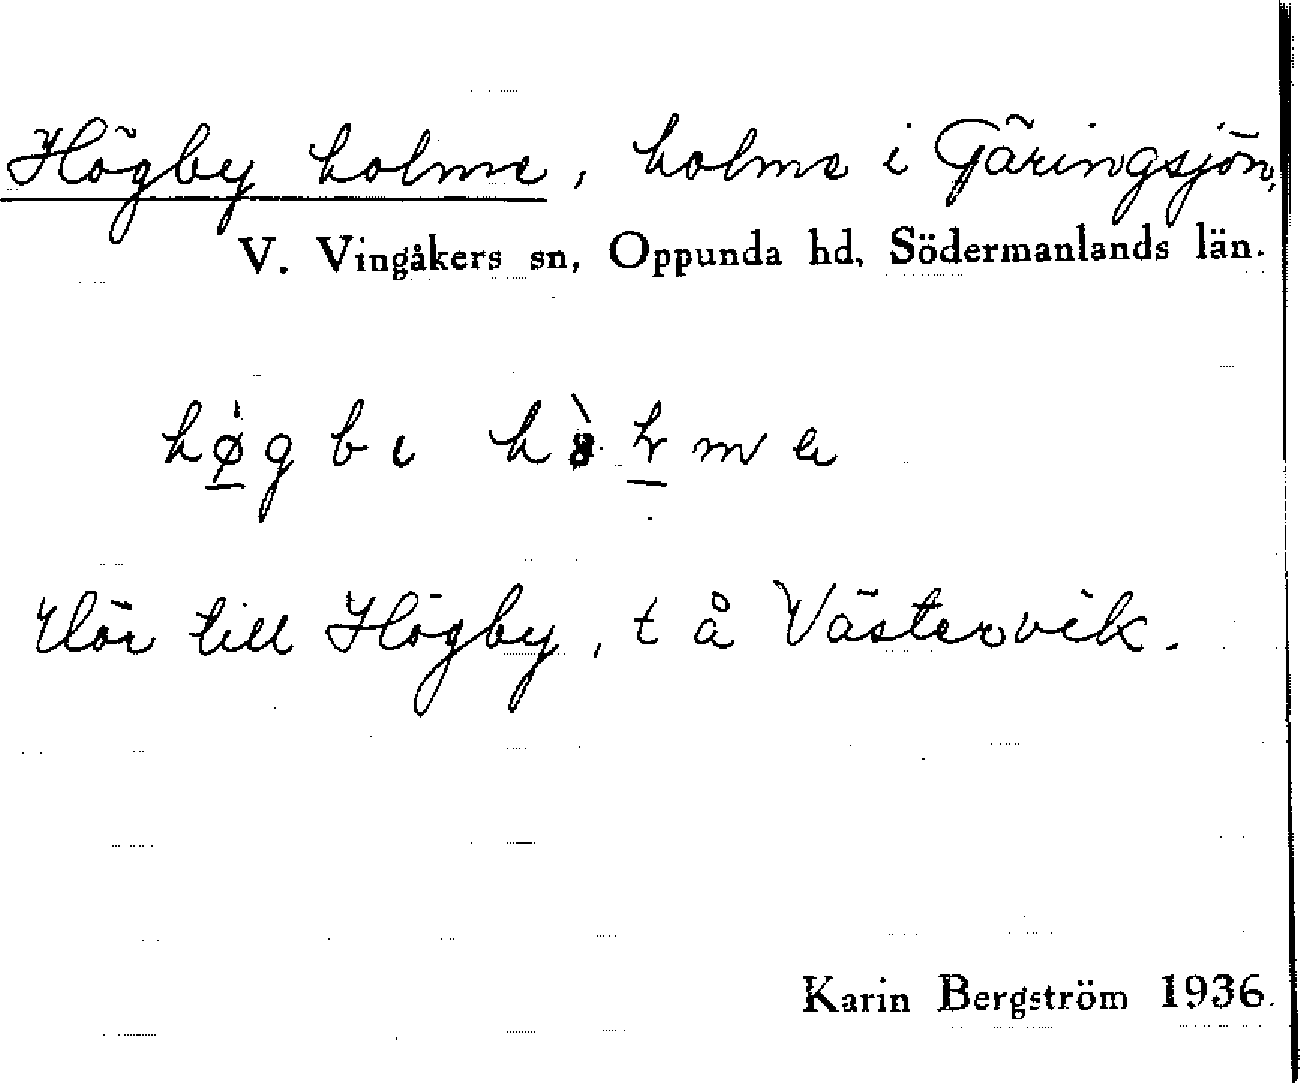 Högby holme, holme i Gäringsjön,
V. Vingåkers sn, Oppunda hd, Södermanlands län.
hø̀gbɩ
Hör till Högby, t å Västervik.
Karin Bergström 1936.